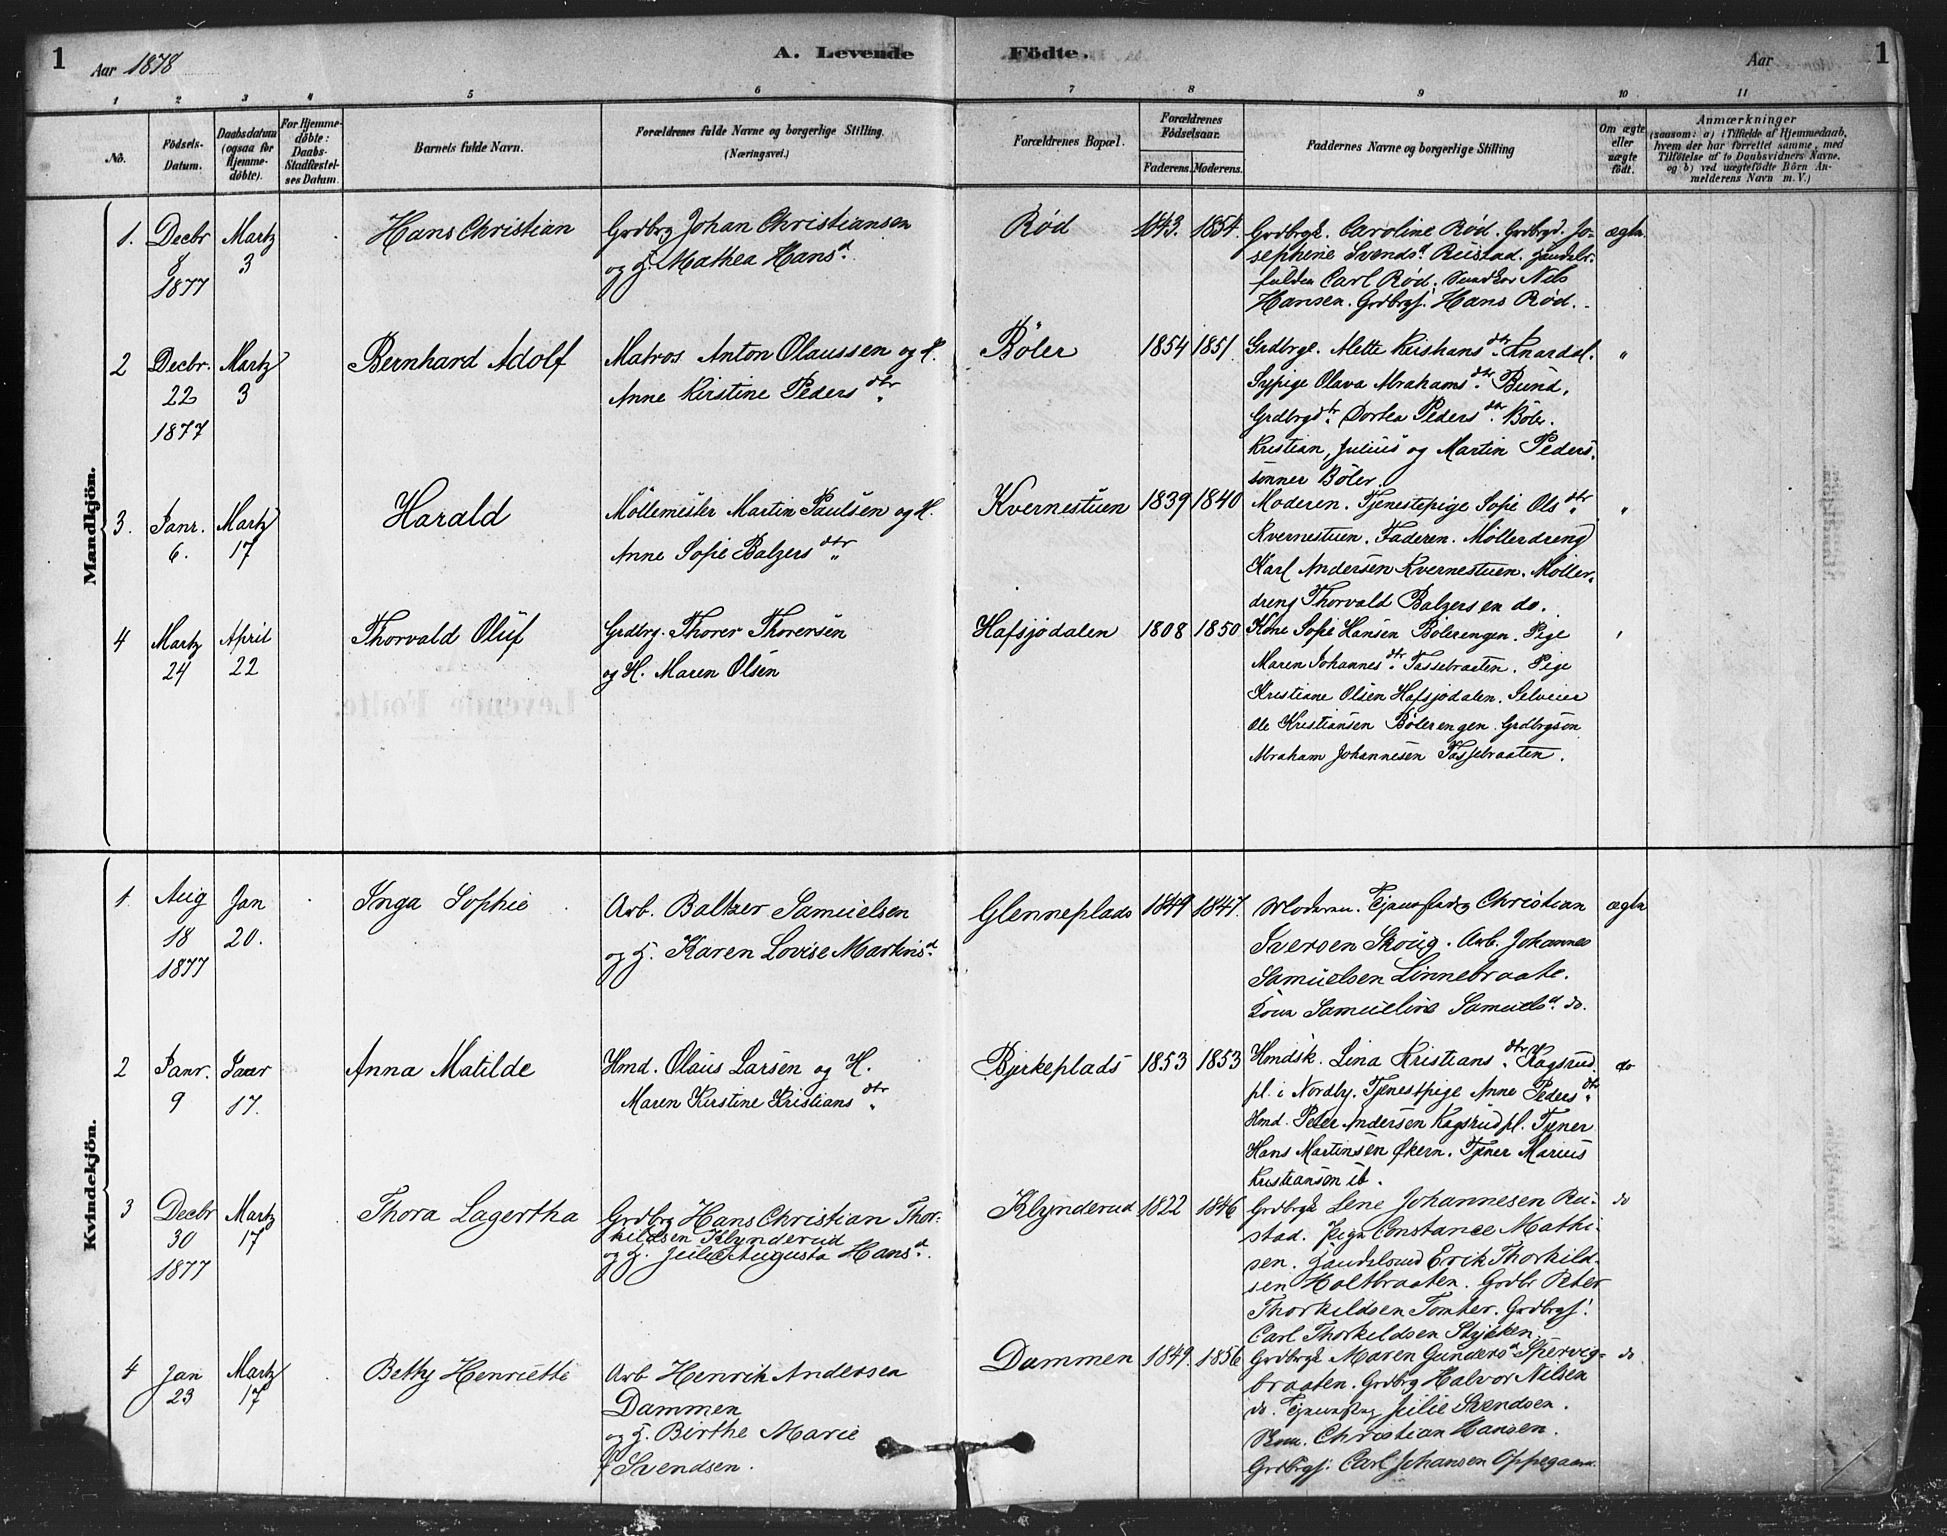 1
Aar 1878
A. Levende Födte.
Aar
1
1 2 3 4 5 6 7 8 9 10 11
No.
Födsels-Datum.
Daabsdatum (ogsaa for Hjemme-döbte).
For Hjemme-döbte: Daabs-Stadfæstel-ses Datum.
Barnets fulde Navn.
Forældrenes fulde Navne og borgerlige Stilling.
(Næringsvei.)
Forældrenes Bopæl.
Forældrenes Födselsaar.
Faderens. Moderens.
Faddernes Navne og borgerlige Stilling
Om ægte eller uægte födt.
Anmærkninger
(saasom: a) i Tilfælde af Hjemmedaab,
hvem der har forrettet samme, med
Tilföielse af to Daabsvidners Navne.
og b) ved uægtefödte Börn An-
melderens Navn m. V.)
Mandkjön.
1. Decbr 8 1877
Martz 3
Hans Christian
Grdbrg Johan Christiansen
og H. Mathea Hansd.
Rød
1843. 1854.
Grdbrgk. Caroline Rød. Grdbrgd. Jo-
sephine Svendsd. Rustad. Handels-
fuldm Carl Rød. Nils
Hansen. Grdbrgs. Hans Rød.
ægte
2 Decbr. 22 1877
Martz 3
Bernhard Adolf
Matros Anton Olaussen og H.
Anne Kirstine Pedersdtr.
Böler
1854 1851.
Grdbrge. Alette Kristiansdtr.
Sypige Olava Abrahamsdtr. Bund.
Grdbrgdtr. Dortea Pedersdtr. Böler.
Kristian, Julius og Martin Peders-
sönner Böler.
"
3. Janr. 6.
Martz 17
Harald
Möllemester Martin Paulsen og H.
Anne Sofie Balzersdtr.
Kvernestuen
1839 1840
Moderen. Tjenestepige Sofie Olsdtr.
Kvernestuen. Faderen. Möllerdreng
Karl Andersen Kvernestuen. Möller-
dreng Thorvald Balzersen do.
"
4 Martz 24
April 22
Thorvald Oluf
Grdbrg. Thorer Thorersen
og H. Maren Olsen
Hafsjödalen
1808 1850
Kone Sofie Hansen Bölerengen. Pige
Maren Johannesdtr. Tassebraaten. Pige
Kristiane Olsen Hafsjödalen. Selveier
Ole Kristiansen Bölerengen. Grdbrgsön
Abraham Johannesen Tassebraaten.
Kvindekjön.
1. Aug 18 1877
Jan 20.
Inga Sophie
Arb. Baltzer Samuelsen
og H. Karen Lovise Martinsd.
Glenneplads
1849 1847.
Moderen. Christian
Iversen Skoug. Arb. Johannes
Samuelsen Linnebraate.
Kone Samueline Samuelsd. do.
ægte
2 Janr. 9
17.
Anna Matilde
Hmd. Olaus Larsen og H.
Maren Kirstine Kristiansdtr.
Bjerkeplads
1853 1853
Hmdsk. Lina Kristiansdtr. Kagsrud
pl. i Nordby. Tjenestpige Anne Pedersdtr.
Hmd. Peter Andersen Kagsrud pl. Tjener
Hans Martinsen Økern. Tjener Marius
Kristiansen ib.
do
3 Decbr 30 1877
Martz 17
Thora Lagertha
Grdbrg Hans Christian Thor-
kildsen Klynderud
og H. Julie Augusta Hansd.
Klynderud
1822 1846
Grdbrgk Lene Johannesen Ru-
stad. Pige Constance Mathi-
sen. Handelsmd Erik Thorkild-
sen Holtbraaten. Grdbr Peter
Thorkildsen Tomter. Grdbrgs.
Carl Thorkildsen Stykken.
do
4 Jan 23
Martz 17
Bethy Henriette
Arb Henrik Andersen
Dammen
og H. Birthe Marie
Svendsen.
Dammen
1849. 1856
Grdbrgk Maren Gundersd. Spervig-
braaten. Grdbrg Halvor Nilsen
do. Julie Svendsen.
Christian Hansen.
Grdbrgs. Carl Johansen Oppegaard.
do